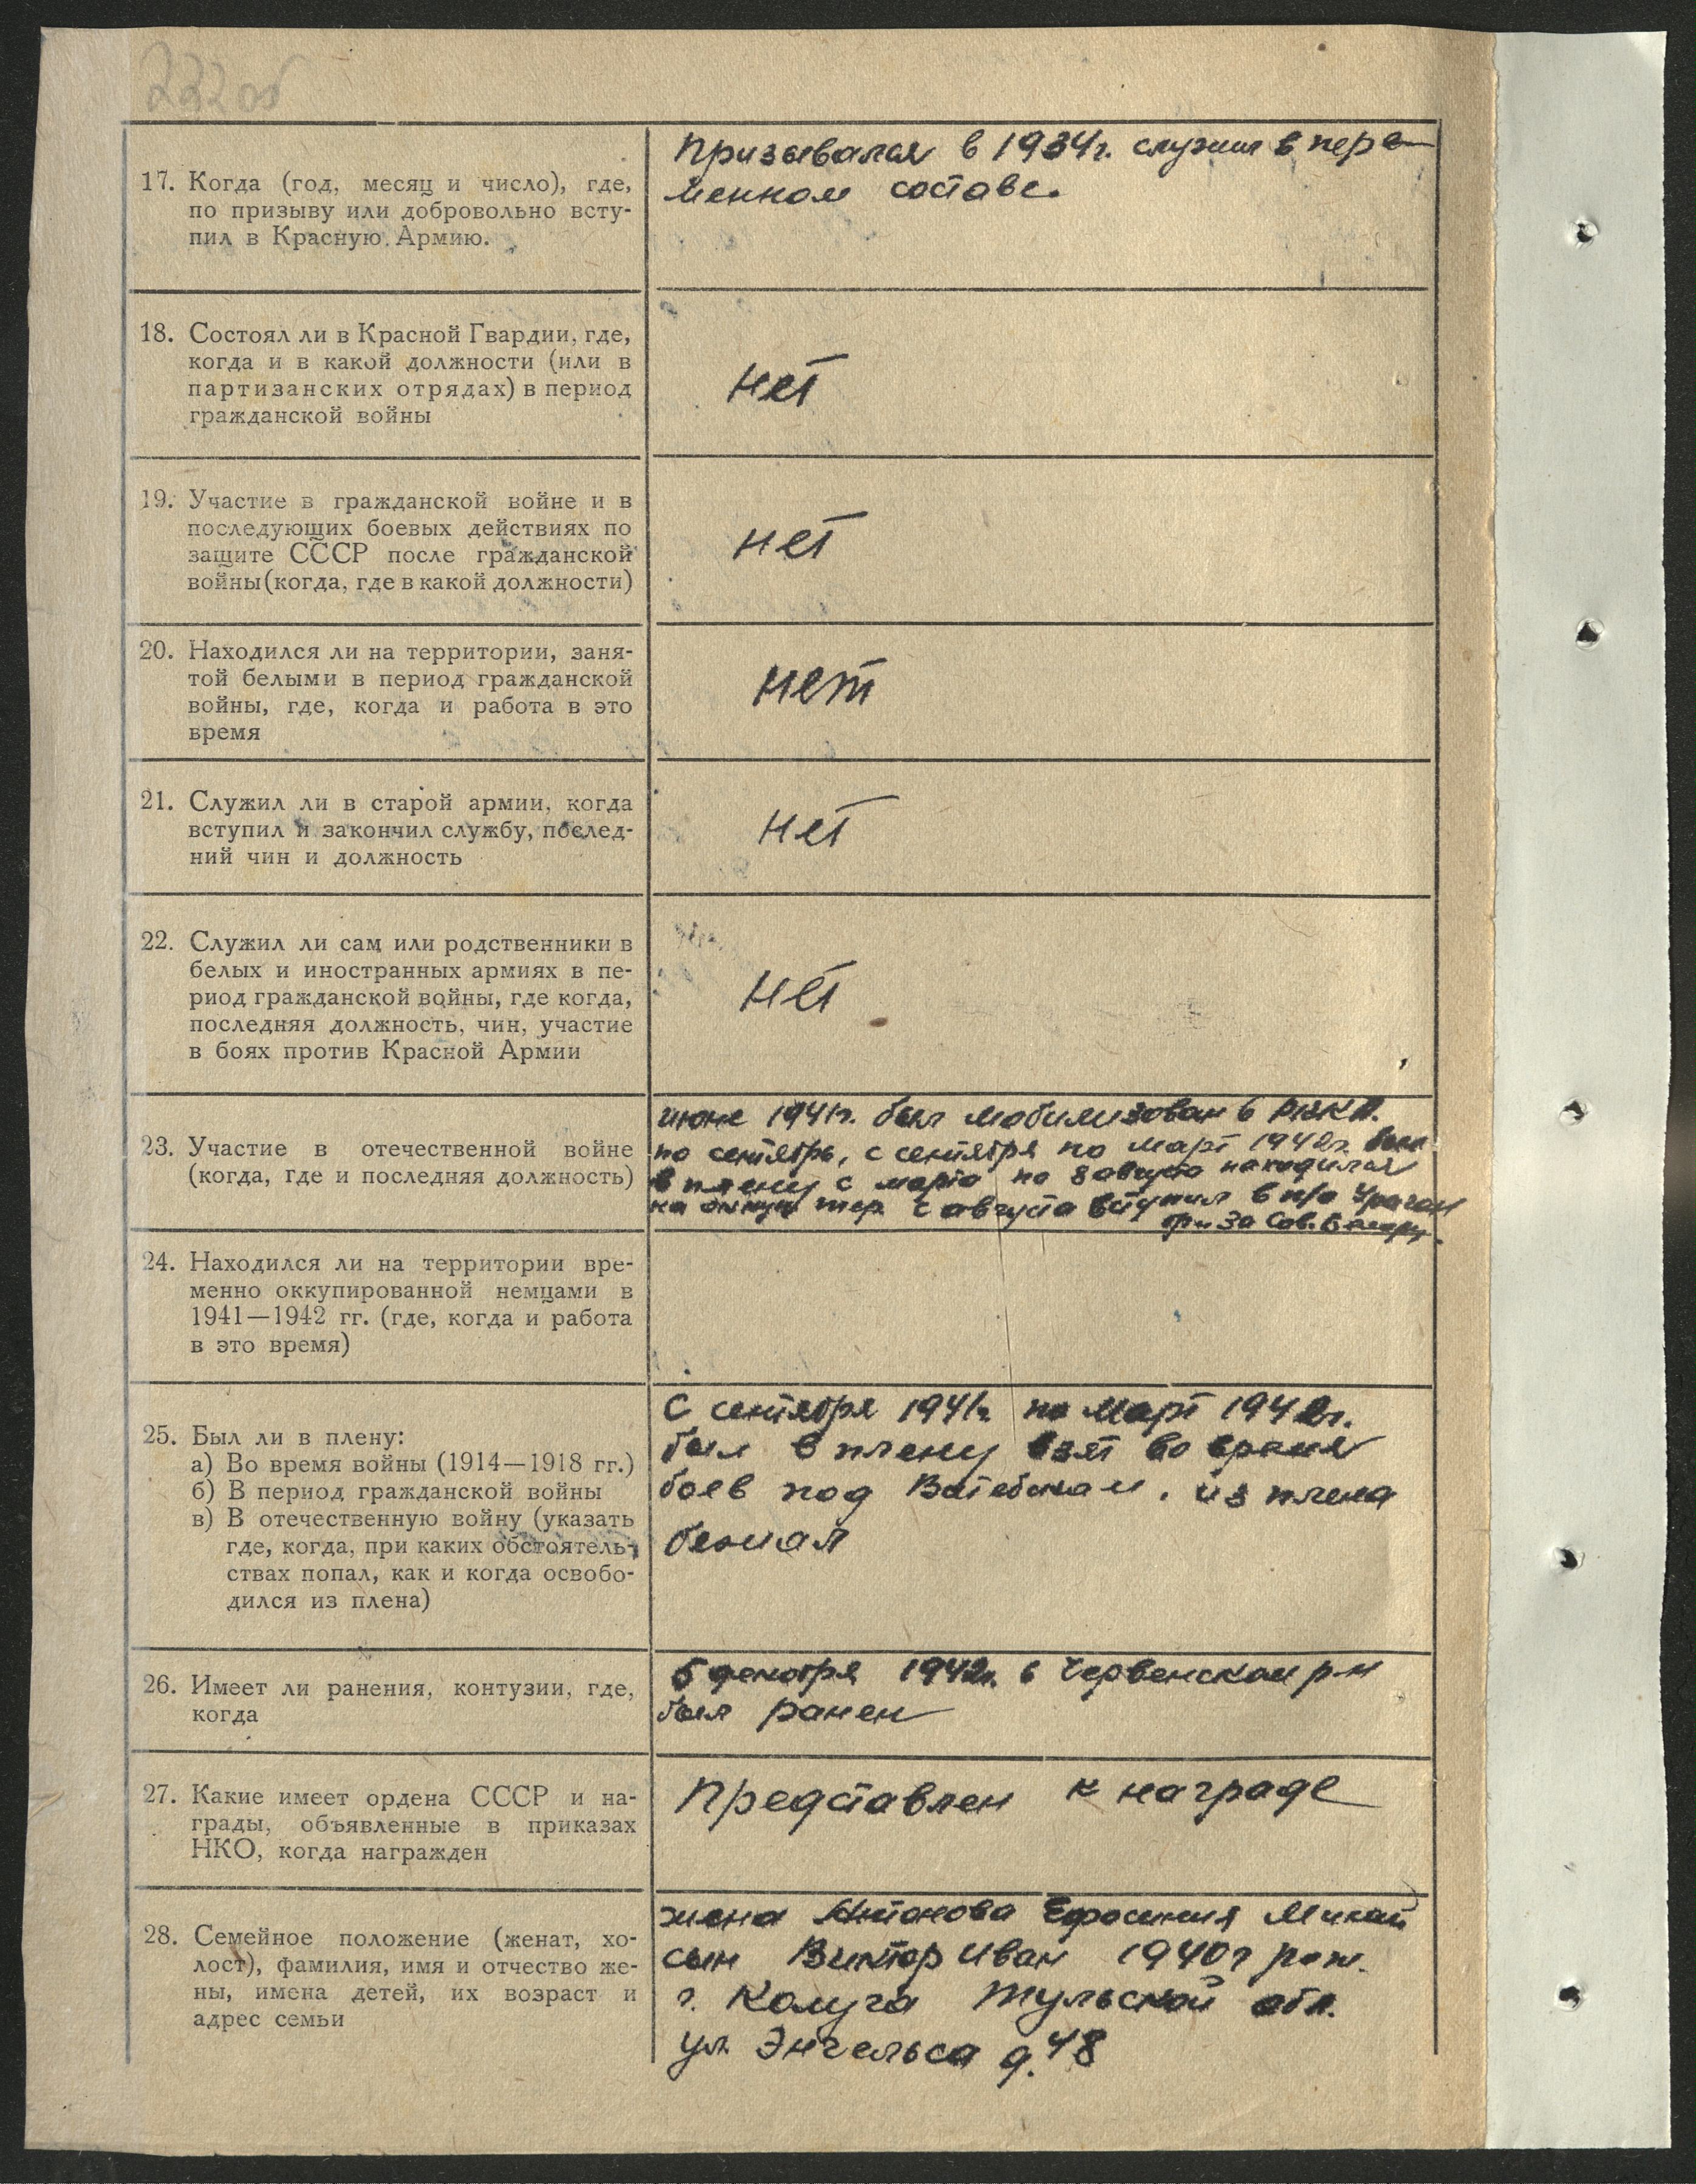 232об
17. Когда (год, месяц и число), где,
по призыву или добровольно всту-
пил в Красную Армию.
Призывался в 1934г. служил в пере-
менном составе.
18. Состоял ли в Красной Гвардии, где,
когда и в какой должности (или в
партизанских отрядах) в период
гражданской войны
нет
19. Участие в гражданской войне и в
последующих боевых действиях по
защите СССР после гражданской
войны (когда, где в какой должности)
нет
20. Находился ли на территории, заня-
той белыми в период гражданской
войны, где, когда и работа в это
время
нет
21. Служил ли в старой армии, когда
вступил и закончил службу, послед-
ний чин и должность
нет
22. Служил ли сам или родственники в
белых и иностранных армиях в пе-
риод гражданской войны, где когда,
последняя должность, чин, участие
в боях против Красной Армии
нет
23. Участие в отечественной войне
(когда, где и последняя должность)
июне 1941г. был мобилизован в РККА.
по сентябрь, с сентября по март 1942г. был
в плену с марта по август находился
на тер. с августа вступил в п/о Ураган
за Сов.
24. Находился ли на территории вре-
менно оккупированной немцами в
1941—1942 гг. (где, когда и работа
в это время)
25. Был ли в плену:
а) Во время войны (1914—1918 гг.)
б) В период гражданской войны
в) В отечественную войну (указать
где, когда, при каких обстоятель-
ствах попал, как и когда освобо-
дился из плена)
С сентября 1941г. по март 1942г.
был в плену взят во время
боев под Витебском. из плена
бежал
26. Имеет ли ранения, контузии, где,
когда
5 декабря 1942г. в Червенском р-н
был ранен
27. Какие имеет ордена СССР и на-
грады, объявленные в приказах
НКО, когда награжден
Представлен к награде
28. Семейное положение (женат, хо-
лост), фамилия, имя и отчество же-
ны, имена детей, их возраст и
адрес семьи
жена Антонова Ефросиния Михай
сын Виктор Иван 1940г рож.
г. Калуга Тульской обл.
ул. Энгельса д. 48